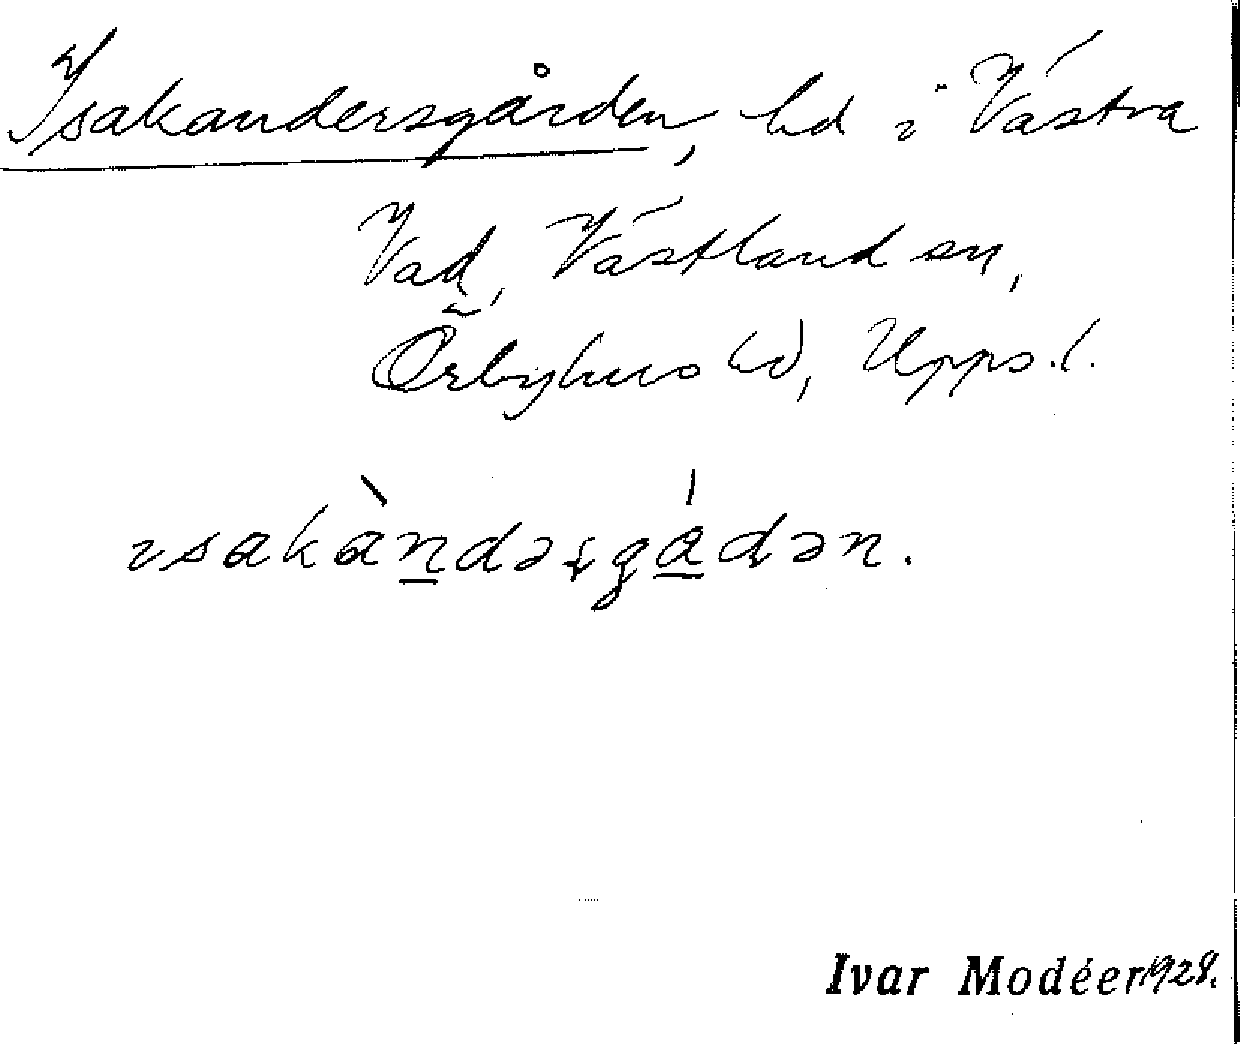 Isakandersgården, hd i Västra
Vad, Västland sn,
Örbyhus hd, Upps. l.
ısakàndəʂgáɖən.
Ivar Modéer 1928.